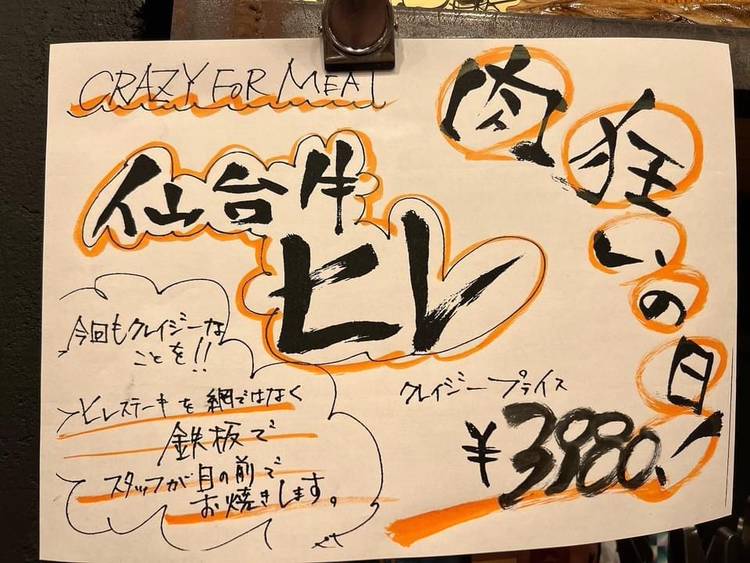 CRAZY FOR MEAT
肉狂いの日!
仙台牛
ヒレ
今回もクレイジーな
ことを!!
ヒレステーキを網ではなく
鉄板で
スタッフが目の前で
お焼きします。
クレイジープライス
¥3980、